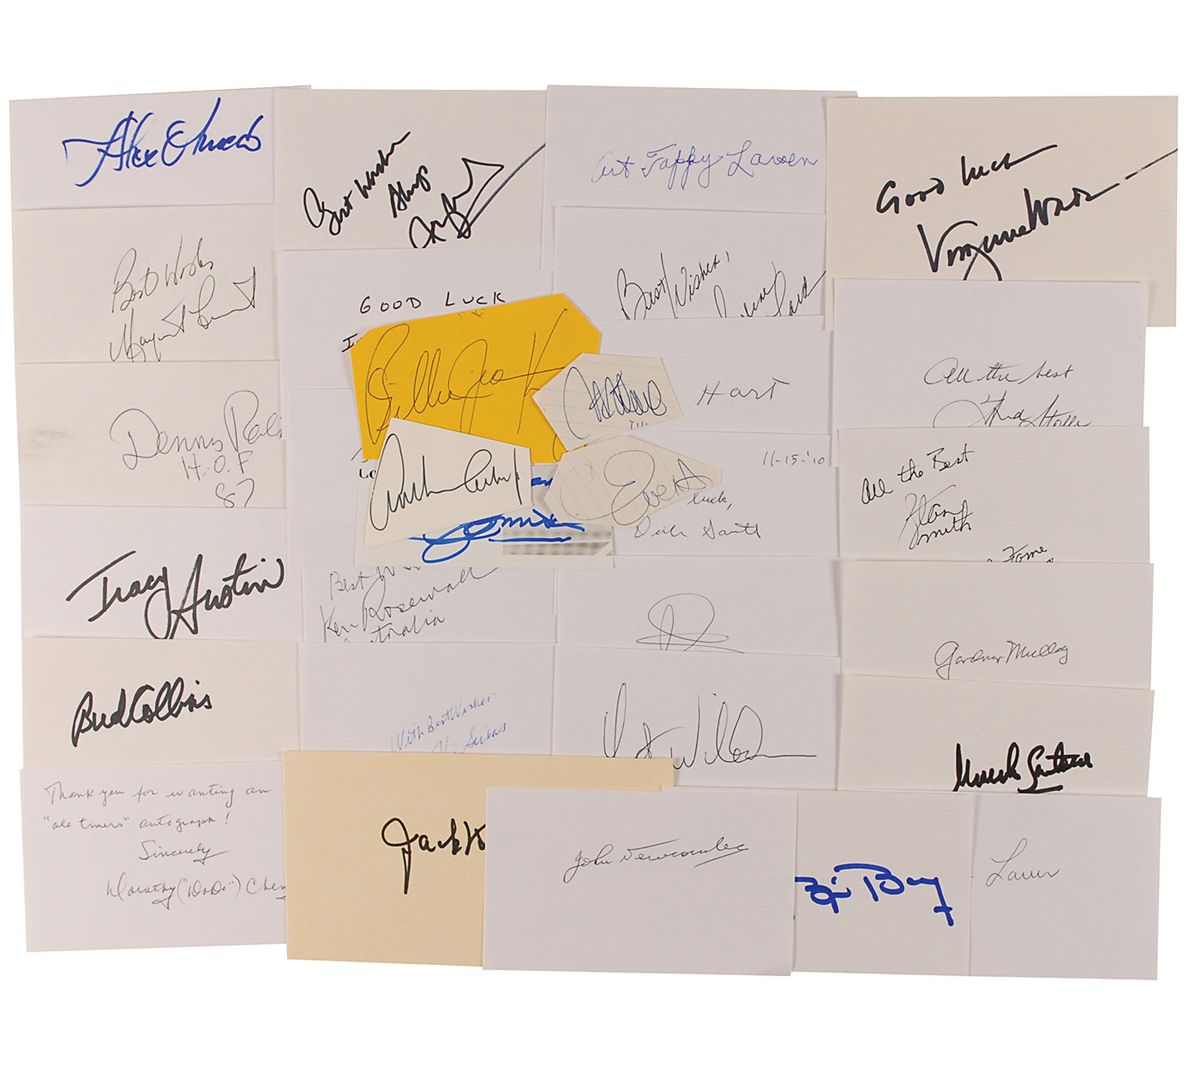 Alex Olmedo
Best Wishes
Always
Art Tappy Larsen
Good luck
Virginia Wade
Best Wishes
Margaret Court
GOOD LUCK
Best Wishes,
Billie Jean K
Hart
All the best
Fred Stolle
Dennis Ral
H.O.F
87
11-15-'10
Evert
luck,
Dick Savitt
All the Best
Stan
Smith
Fome
Tracy Austin
Best Wi
Ken Rosewall
Australia
Gardnar Mulloy
Bud Collins
With Best Wishes
Vic Seixas
Mats Wilander
Manolo Santana
Thank you for wanting an
"old timers" autograph!
Sincerely
Dorothy ("DoDo") Chen
Jack K
John Newcombe
Laver